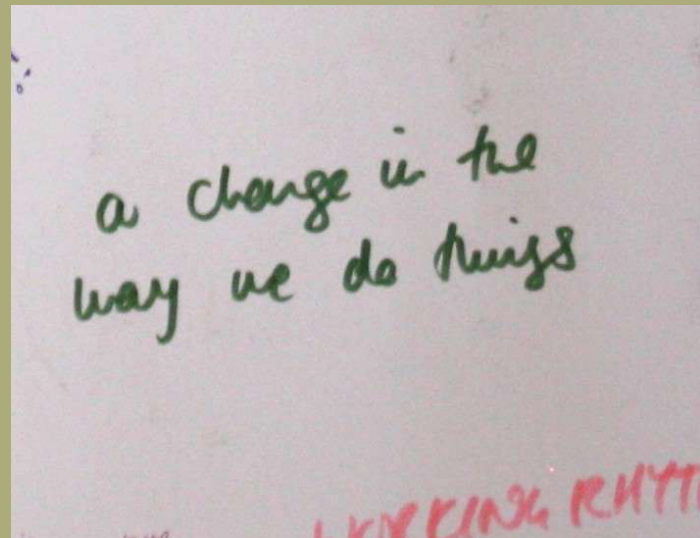 a change in the
way we do things
WORKING RHYT